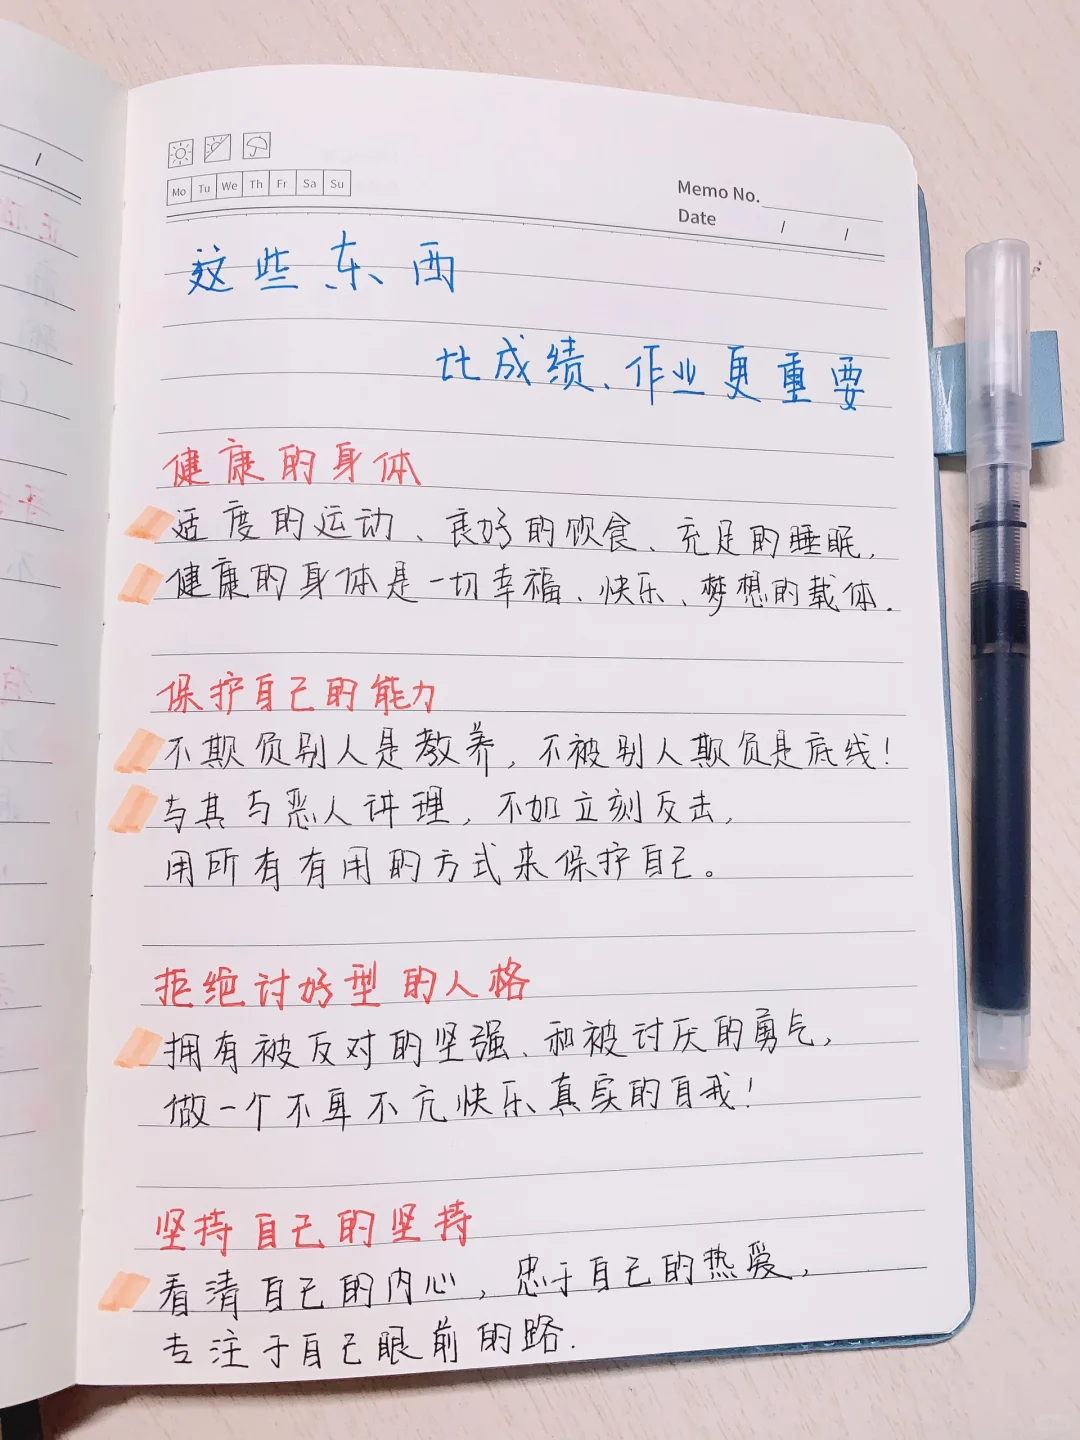 Mo Tu We Th Fr Sa Su
Memo No.
Date / /
这些东西
比成绩、作业更重要
健康的身体
适度的运动、良好的饮食、充足的睡眠,
健康的身体是一切幸福、快乐、梦想的载体.
保护自己的能力
不欺负别人是教养,不被别人欺负是底线!
与其与恶人讲理,不如立刻反击,
用所有有用的方式来保护自己。
拒绝讨好型的人格
拥有被反对的坚强、和被讨厌的勇气,
做一个不卑不亢快乐真实的自我!
坚持自己的坚持
看清自己的内心,忠于自己的热爱,
专注于自己眼前的路.